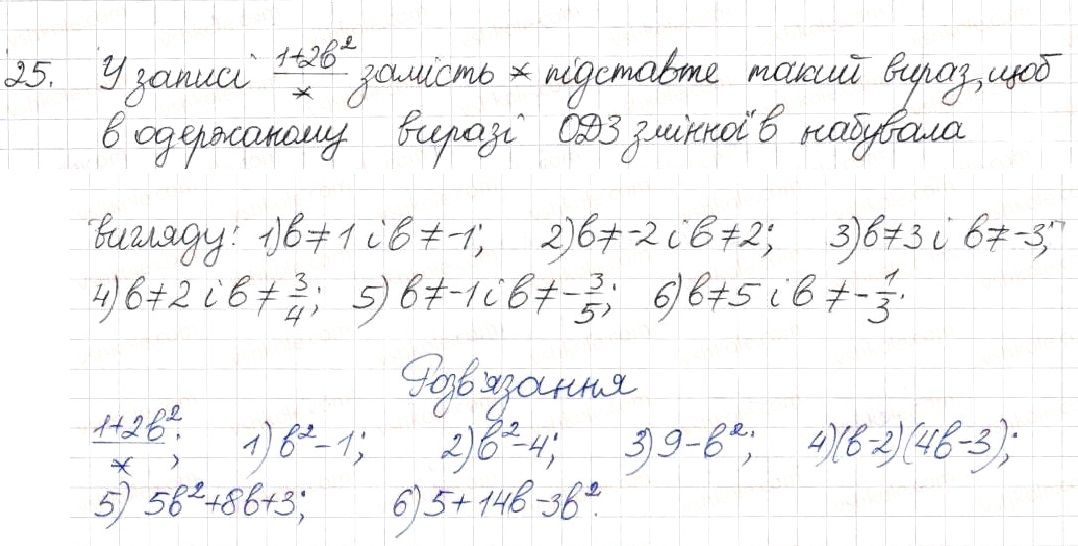 25. У записі (1+2в²)/* замість * підставте такий вираз, щоб
в одержаному виразі ОДЗ змінної в набувала
вигляду: 1) в ≠ 1 і в ≠ -1; 2) в ≠ -2 і в ≠ 2; 3) в ≠ 3 і в ≠ -3;
4) в ≠ 2 і в ≠ 3/4; 5) в ≠ -1 і в ≠ -3/5; 6) в ≠ 5 і в ≠ -1/3.
Розв'язання
(1+2в²)/*; 1) в²-1; 2) в²-4; 3) 9-в²; 4) (в-2)(4в-3);
5) 5в²+8в+3; 6) 5+14в-3в².